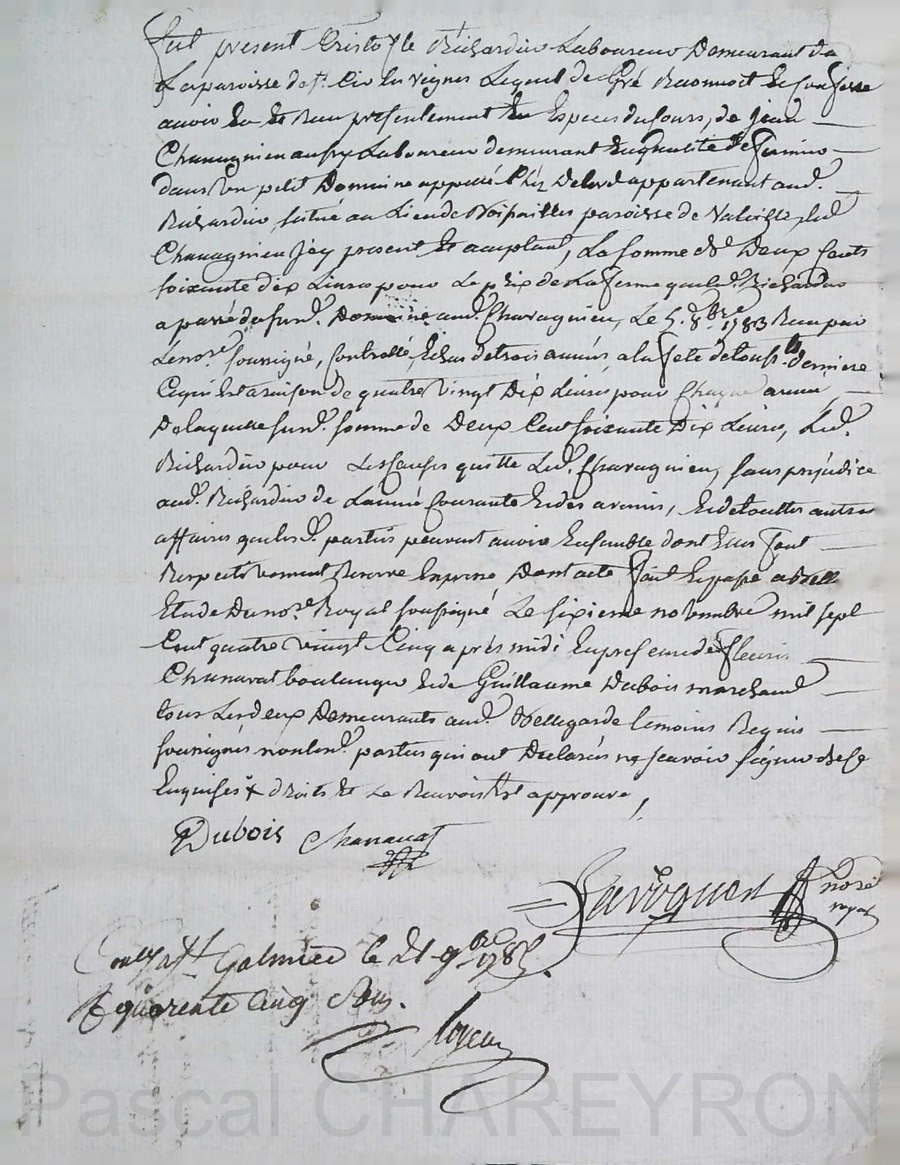 fut present Cristofle Richardier Laboureur Demeurant da
La paroisse de st Cir les vignes Lequel de Gré Reconnoit et Confesse
avoir Eu et Reçu présentement En Especes du Cours, de jean
Chavagnieu aussy Laboureur demeurant En qualité de fermier
dans un petit Domaine appellé Chéz Delord appartenant aud.
Richardier, situé au Lieu de paroisse de Valeille, Led
Chavagnieu Icy present Et acceptant, La somme de Deux Cents
soixante dix Livres pour Le prix de La ferme que led. Richardier
a passé du surd. Domaine aud. Chavagnieu, Le 5. 8bre 1783 Reçu par
Le nore. soussigné, Controllé, Echus de trois années a la fete de touss.ts derniere
Ce qui Est a raison de quatre vingt Dix Livres pour Chaque année
De laquelle surd. somme de Deux Cent soixante Dix Livres, Led.
Richardier pour quitte Led. Chavagnieu, sans prejudice
aud. Richardier de L'année Courante Et des avenir, Et de touttes autres
affaires que les d. parties peuvent avoir Ensemble dont Elles font
Respectivement Reserve Expresse Dont acte fait Et passé a
Etude Du nore. Royal soussigné Le sixieme novembre mil sept
Cent quatre vingt Cinq aprés midi En presence de fleuris
Chanavat boulanger Et de Guillaume Dubois marchand
tous Les deux Demeurants aud. Bellegarde temoins Requis
soussignés non les d. parties qui ont Declarés ne scavoir signer de ce
Enquises + droits Et Le Renvoi approuvé,
Dubois Chanavat
nore
royal
Con. a st Galmier le 21 9bre 1785.
R quarente Cinq Sus.
Pascal CHAREYRON